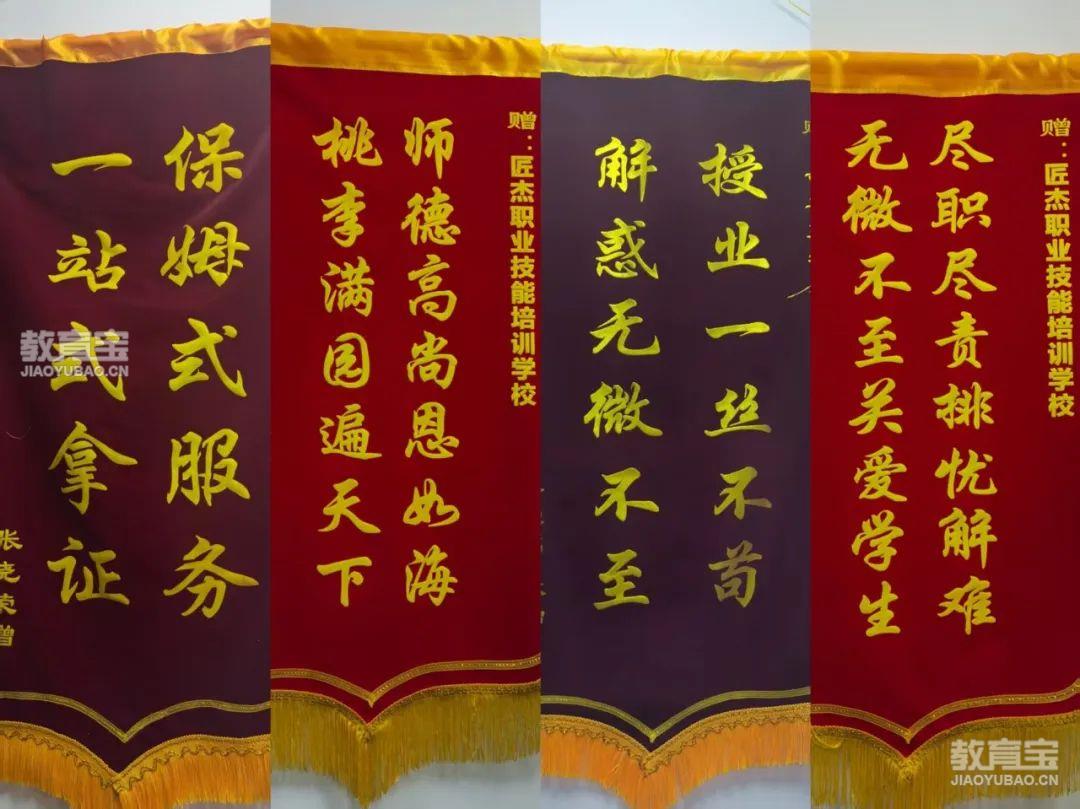 保姆式服务
一站式拿证
赠：匠杰职业技能培训学校
师德高尚恩如海
桃李满园遍天下
授业一丝不苟
解惑无微不至
赠：匠杰职业技能培训学校
尽职尽责排忧解难
无微不至关爱学生
教育宝
JIAOYUBAO.CN
教育宝
JIAOYUBAO.CN